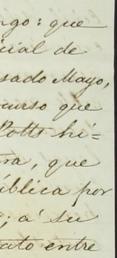 ngo: que
cial de
sado Mayo,
curso que
Potts hi=
ra, que
ública por
; a' su
ato entre